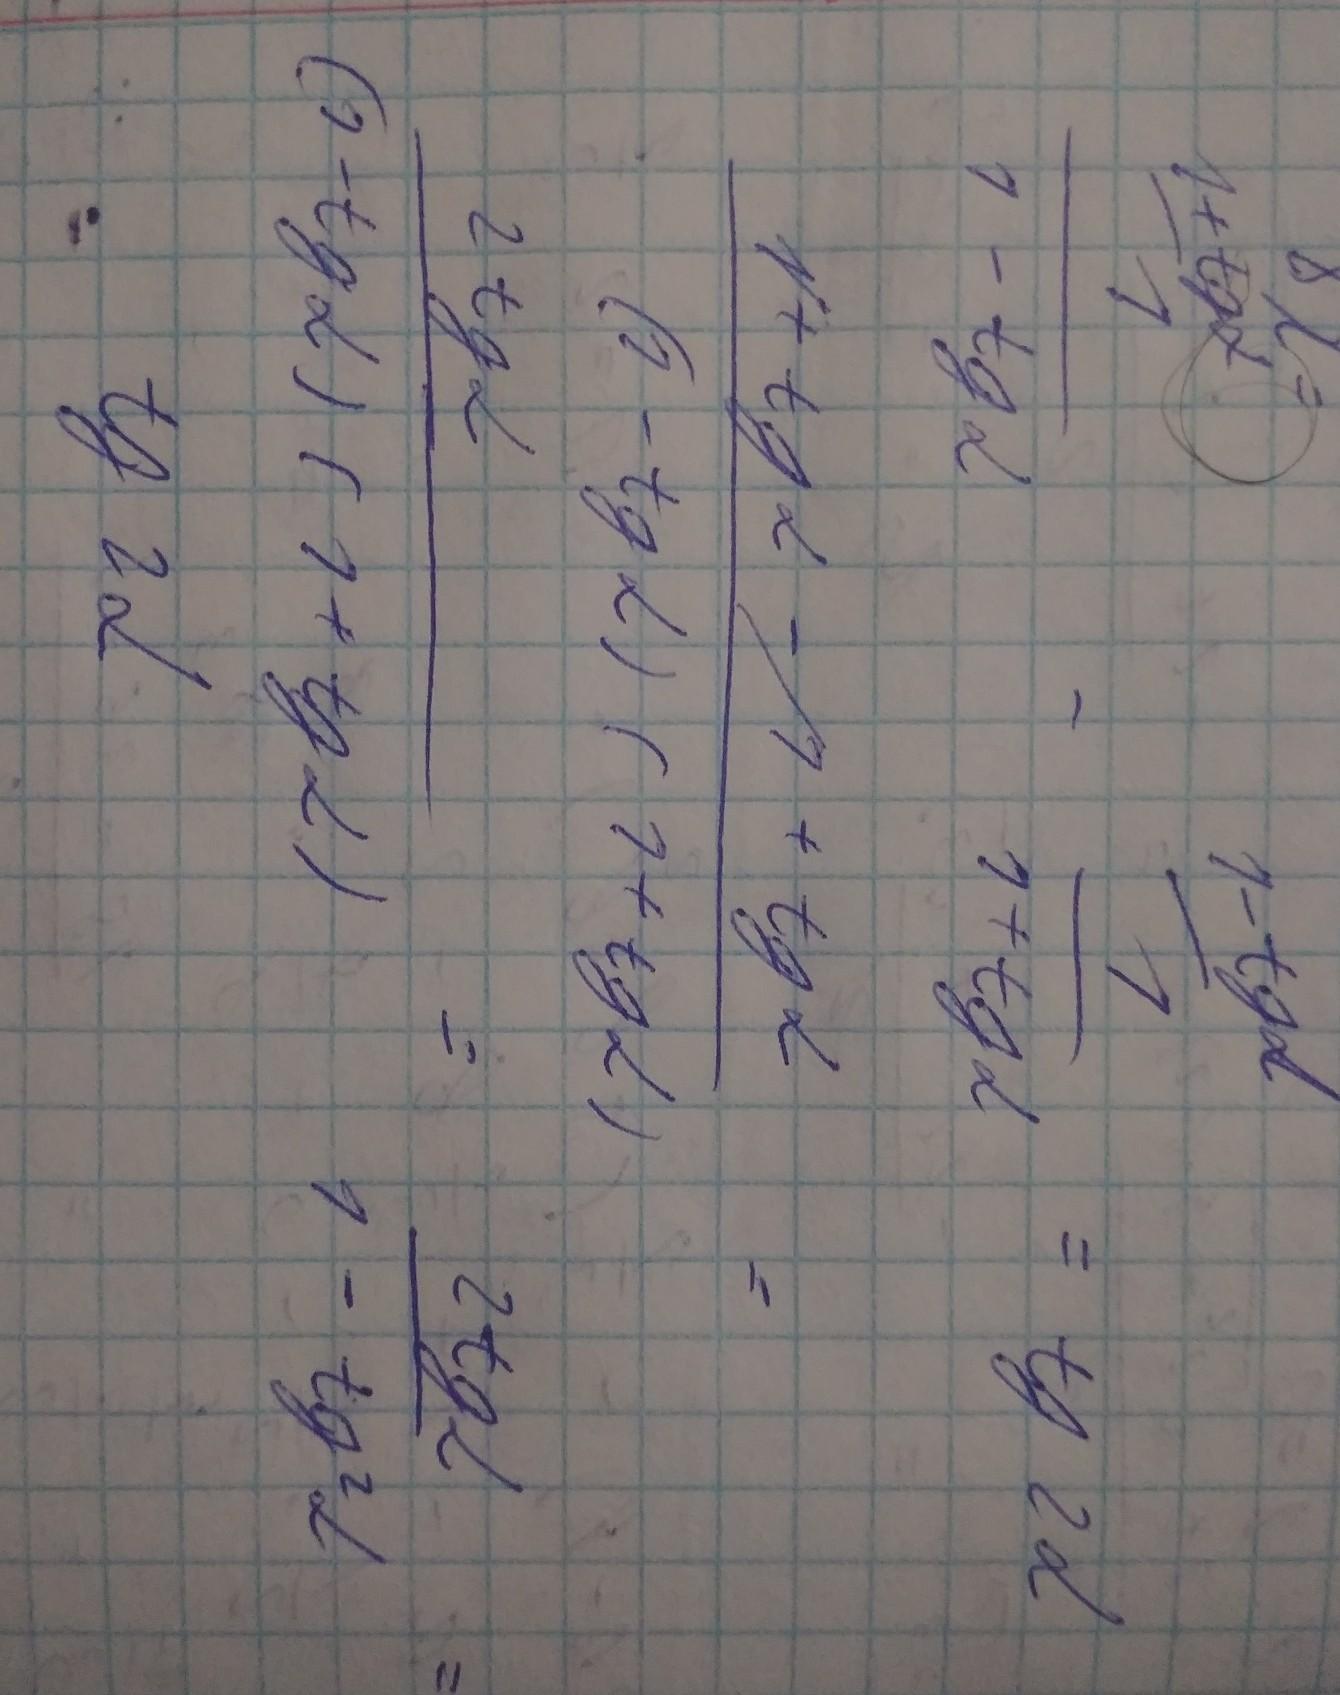 1+tgα 1-tgα
1 - 1 = tg 2α
1 - tgα 1+tgα
1+ tgα - 1 + tgα =
(1 - tgα) (1+tgα)
2 tgα = 2tgα =
(1 -tgα) (1+tgα) 1 - tg²α
= tg 2α